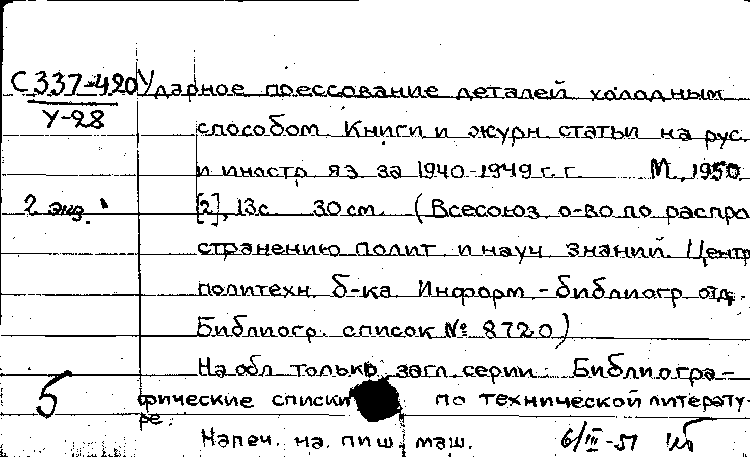 С337-420 Ударное прессование деталей холодным
У-28
способом. Книги и журн. статьи на рус.
и иностр. яз. за 1940-1949 г.г. М., 1950.
2 экз. [2], 13с. 30см. (Всесоюз. о-во по распро
странению полит. и науч. знаний. Центр.
политехн. б-ка. Информ.-библиогр. отд.
Библиогр. список № 8720)
На обл. только загл. серии: Библиогра-
5 фические списки по технической литерату-
ре.
Напеч. на пиш. маш. 6/III-51